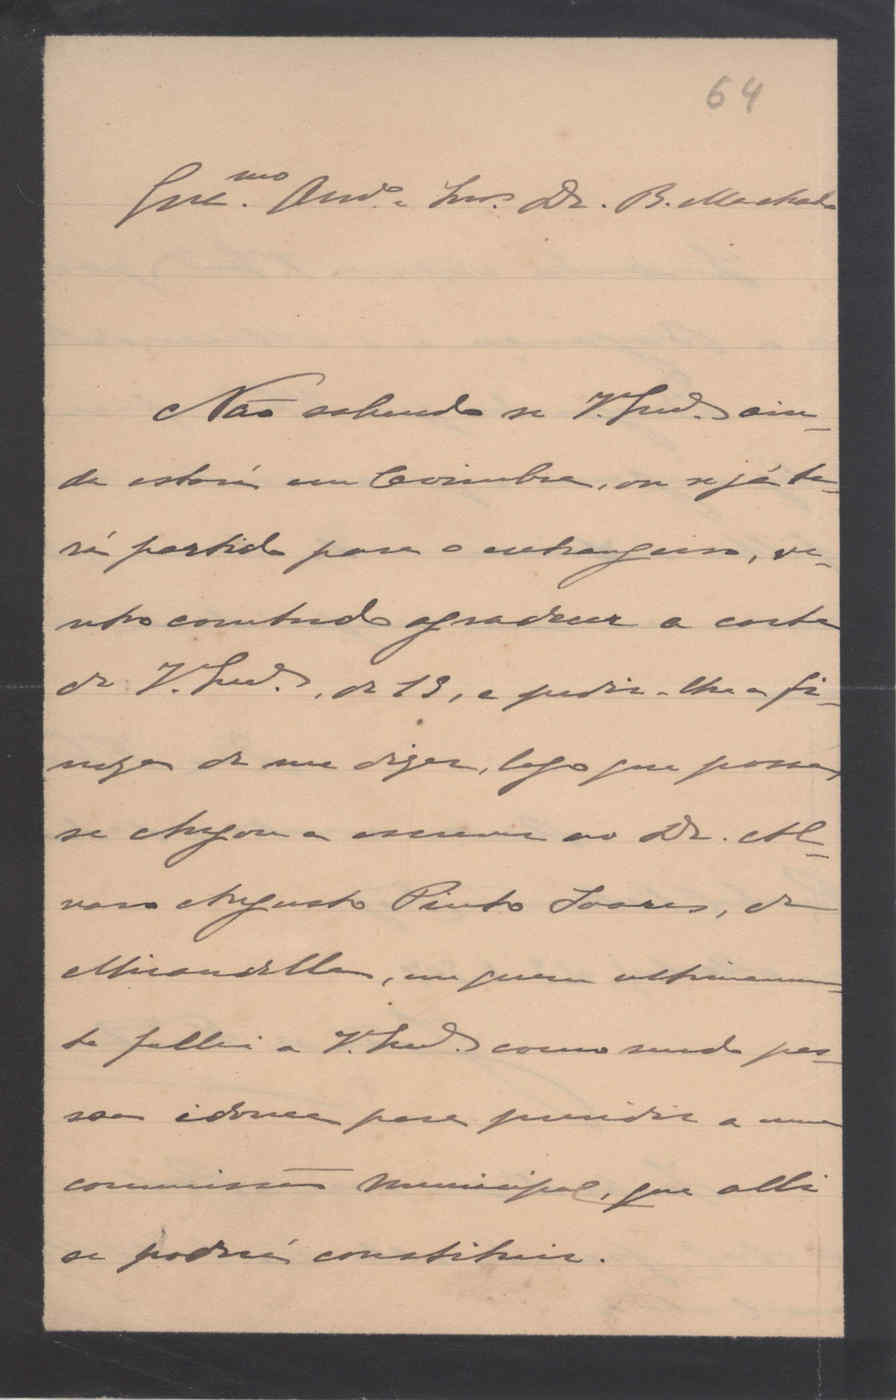 64
Exc.mo Am.o e Snr. Dr. B. Machado
Não sabendo se V. Exc.a ain-
da estará em Coimbra, ou se já te-
rá partido para o extrangeiro, ve-
nho comtudo agradecer a carta
de V. Exc.a, de 13, e pedir-lhe a fi-
neza de me dizer, logo que possa,
se chegou a escrever ao Dr. Al-
varo Augusto Pinto Soares, de
Mirandella, em quem ultimamen-
te fallei a V. Exc.a como sendo pes-
soa idonea para presidir a uma
commissão municipal, que alli
se poderá constituir.